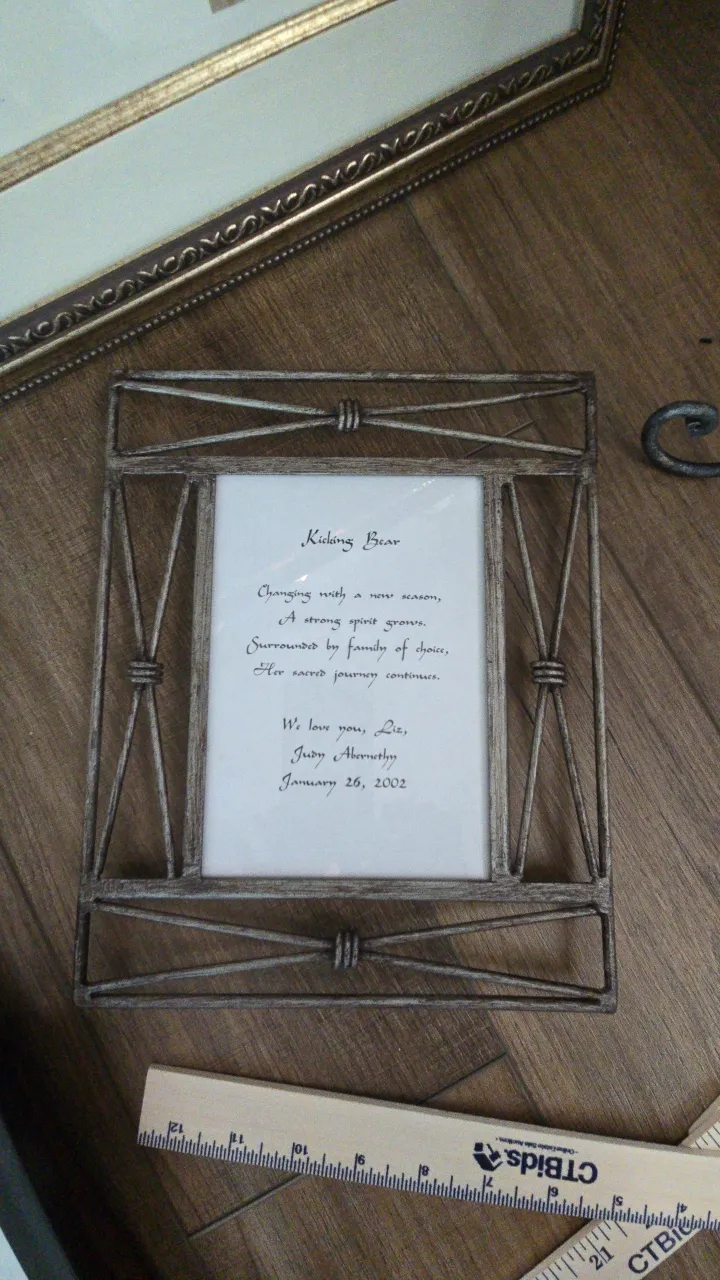 Kicking Bear
Changing with a new season,
A strong spirit grows.
Surrounded by family of choice,
Her sacred journey continues.
We love you, Liz,
Judy Abernethy
January 26, 2002
12 11 10 9 8 7 6 5 4
CTBids.
21
CTBid